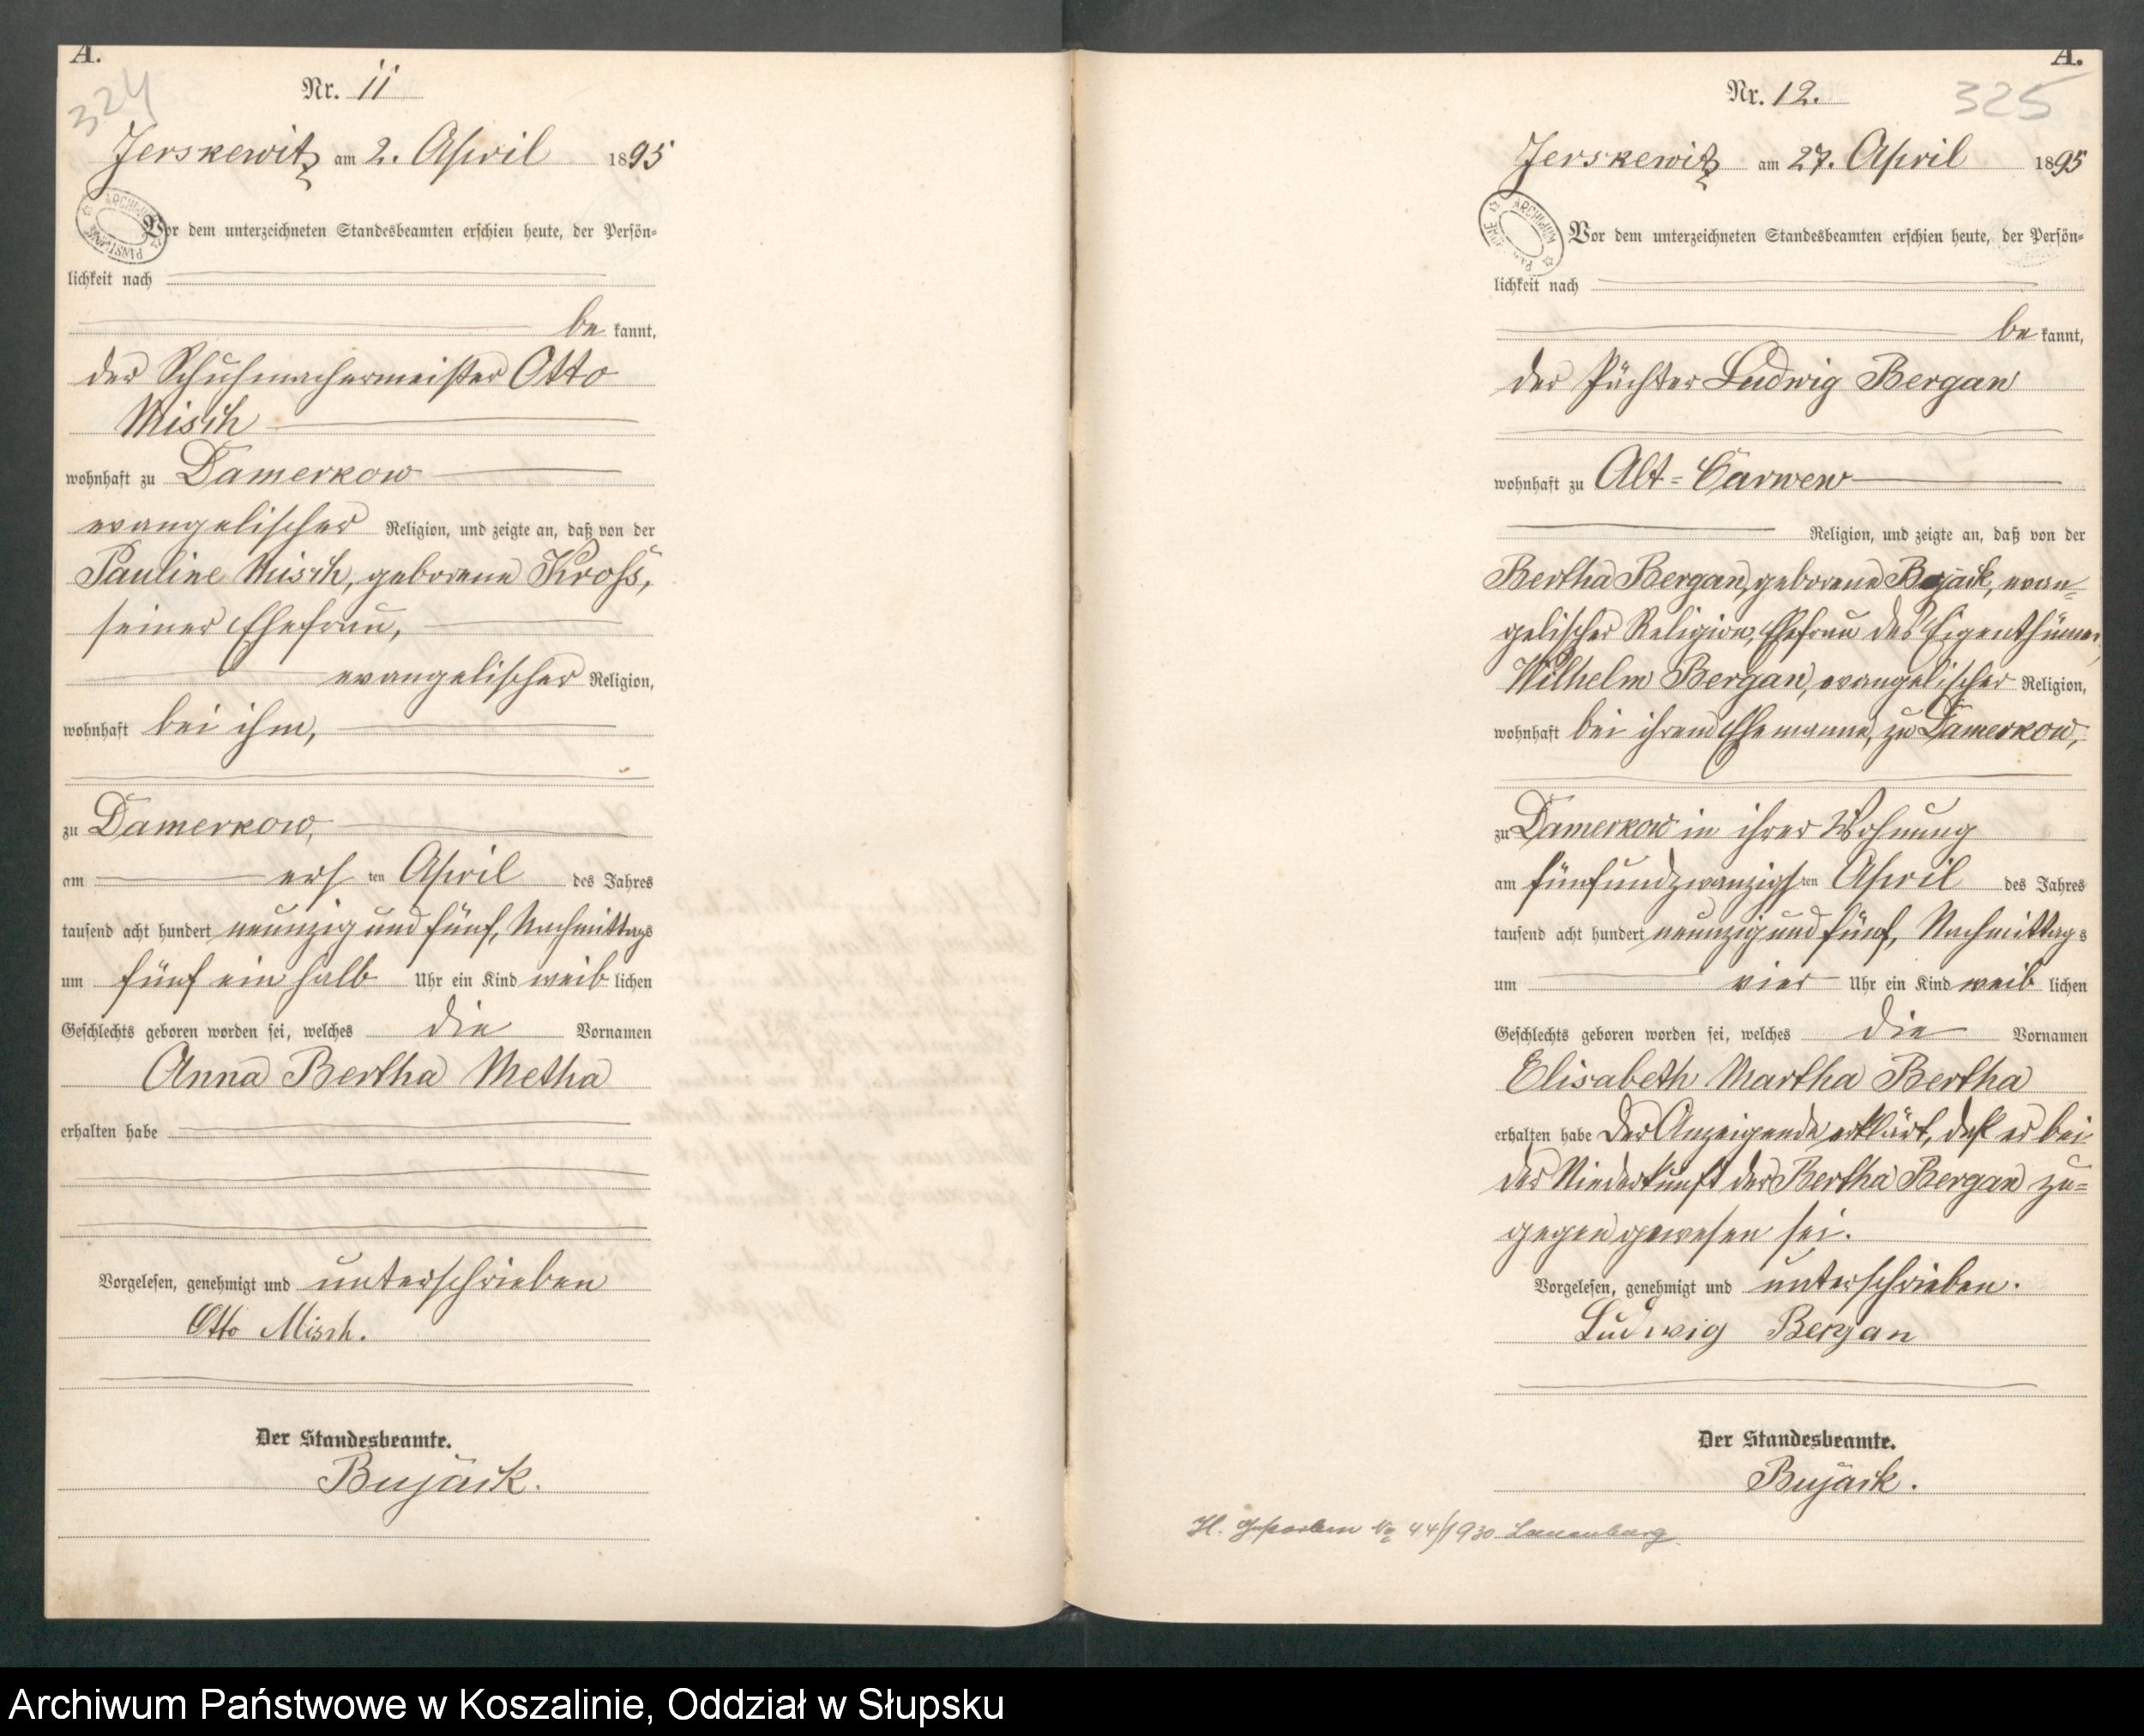 A.
324
Nr. 11
Jerskewitz am 2. April 1895
Vor dem unterzeichneten Standesbeamten erschien heute, der Persön-
lichkeit nach
be kannt,
der Schuhmachermeister Otto
Misch
wohnhaft zu Damerkow
evangelischer Religion, und zeigte an, daß von der
Pauline Misch, geborene Kroß,
seiner Ehefrau,
evangelischer Religion,
wohnhaft bei ihm,
zu Damerkow,
am ers ten April des Jahres
tausend acht hundert neunzig und fünf, Nachmittags
um fünf ein halb Uhr ein Kind weib lichen
Geschlechts geboren worden sei, welches die Vornamen
Anna Bertha Metha
erhalten habe
Vorgelesen, genehmigt und unterschrieben
Otto Misch.
Der Standesbeamte.
Bujack.
A.
325
Nr. 12.
Jerskewitz am 27. April 1895
Vor dem unterzeichneten Standesbeamten erschien heute, der Persön-
lichkeit nach
be kannt,
der Pächter Ludwig Bergan
wohnhaft zu Alt-Carwen
Religion, und zeigte an, daß von der
Bertha Bergan, geborene Bujack, evan-
gelischer Religion, Ehefrau des Eigenthümer,
Wilhelm Bergan, evangelischer Religion,
wohnhaft bei ihrem Ehemanne, zu Damerkow,
zu Damerkow in ihrer Wohnung
am fünfundzwanzigs ten April des Jahres
tausend acht hundert neunzig und fünf, Nachmittags
um vier Uhr ein Kind weib lichen
Geschlechts geboren worden sei, welches die Vornamen
Elisabeth Martha Bertha
erhalten habe Der Anzeigende erklärt, daß er bei
der Niederkunft der Bertha Bergan zu-
gegen gewesen sei.
Vorgelesen, genehmigt und unterschrieben.
Ludwig Bergan
Der Standesbeamte.
Bujack.
H. Gestorben No 44/1930 Lauenburg.
Archiwum Państwowe w Koszalinie, Oddział w Słupsku